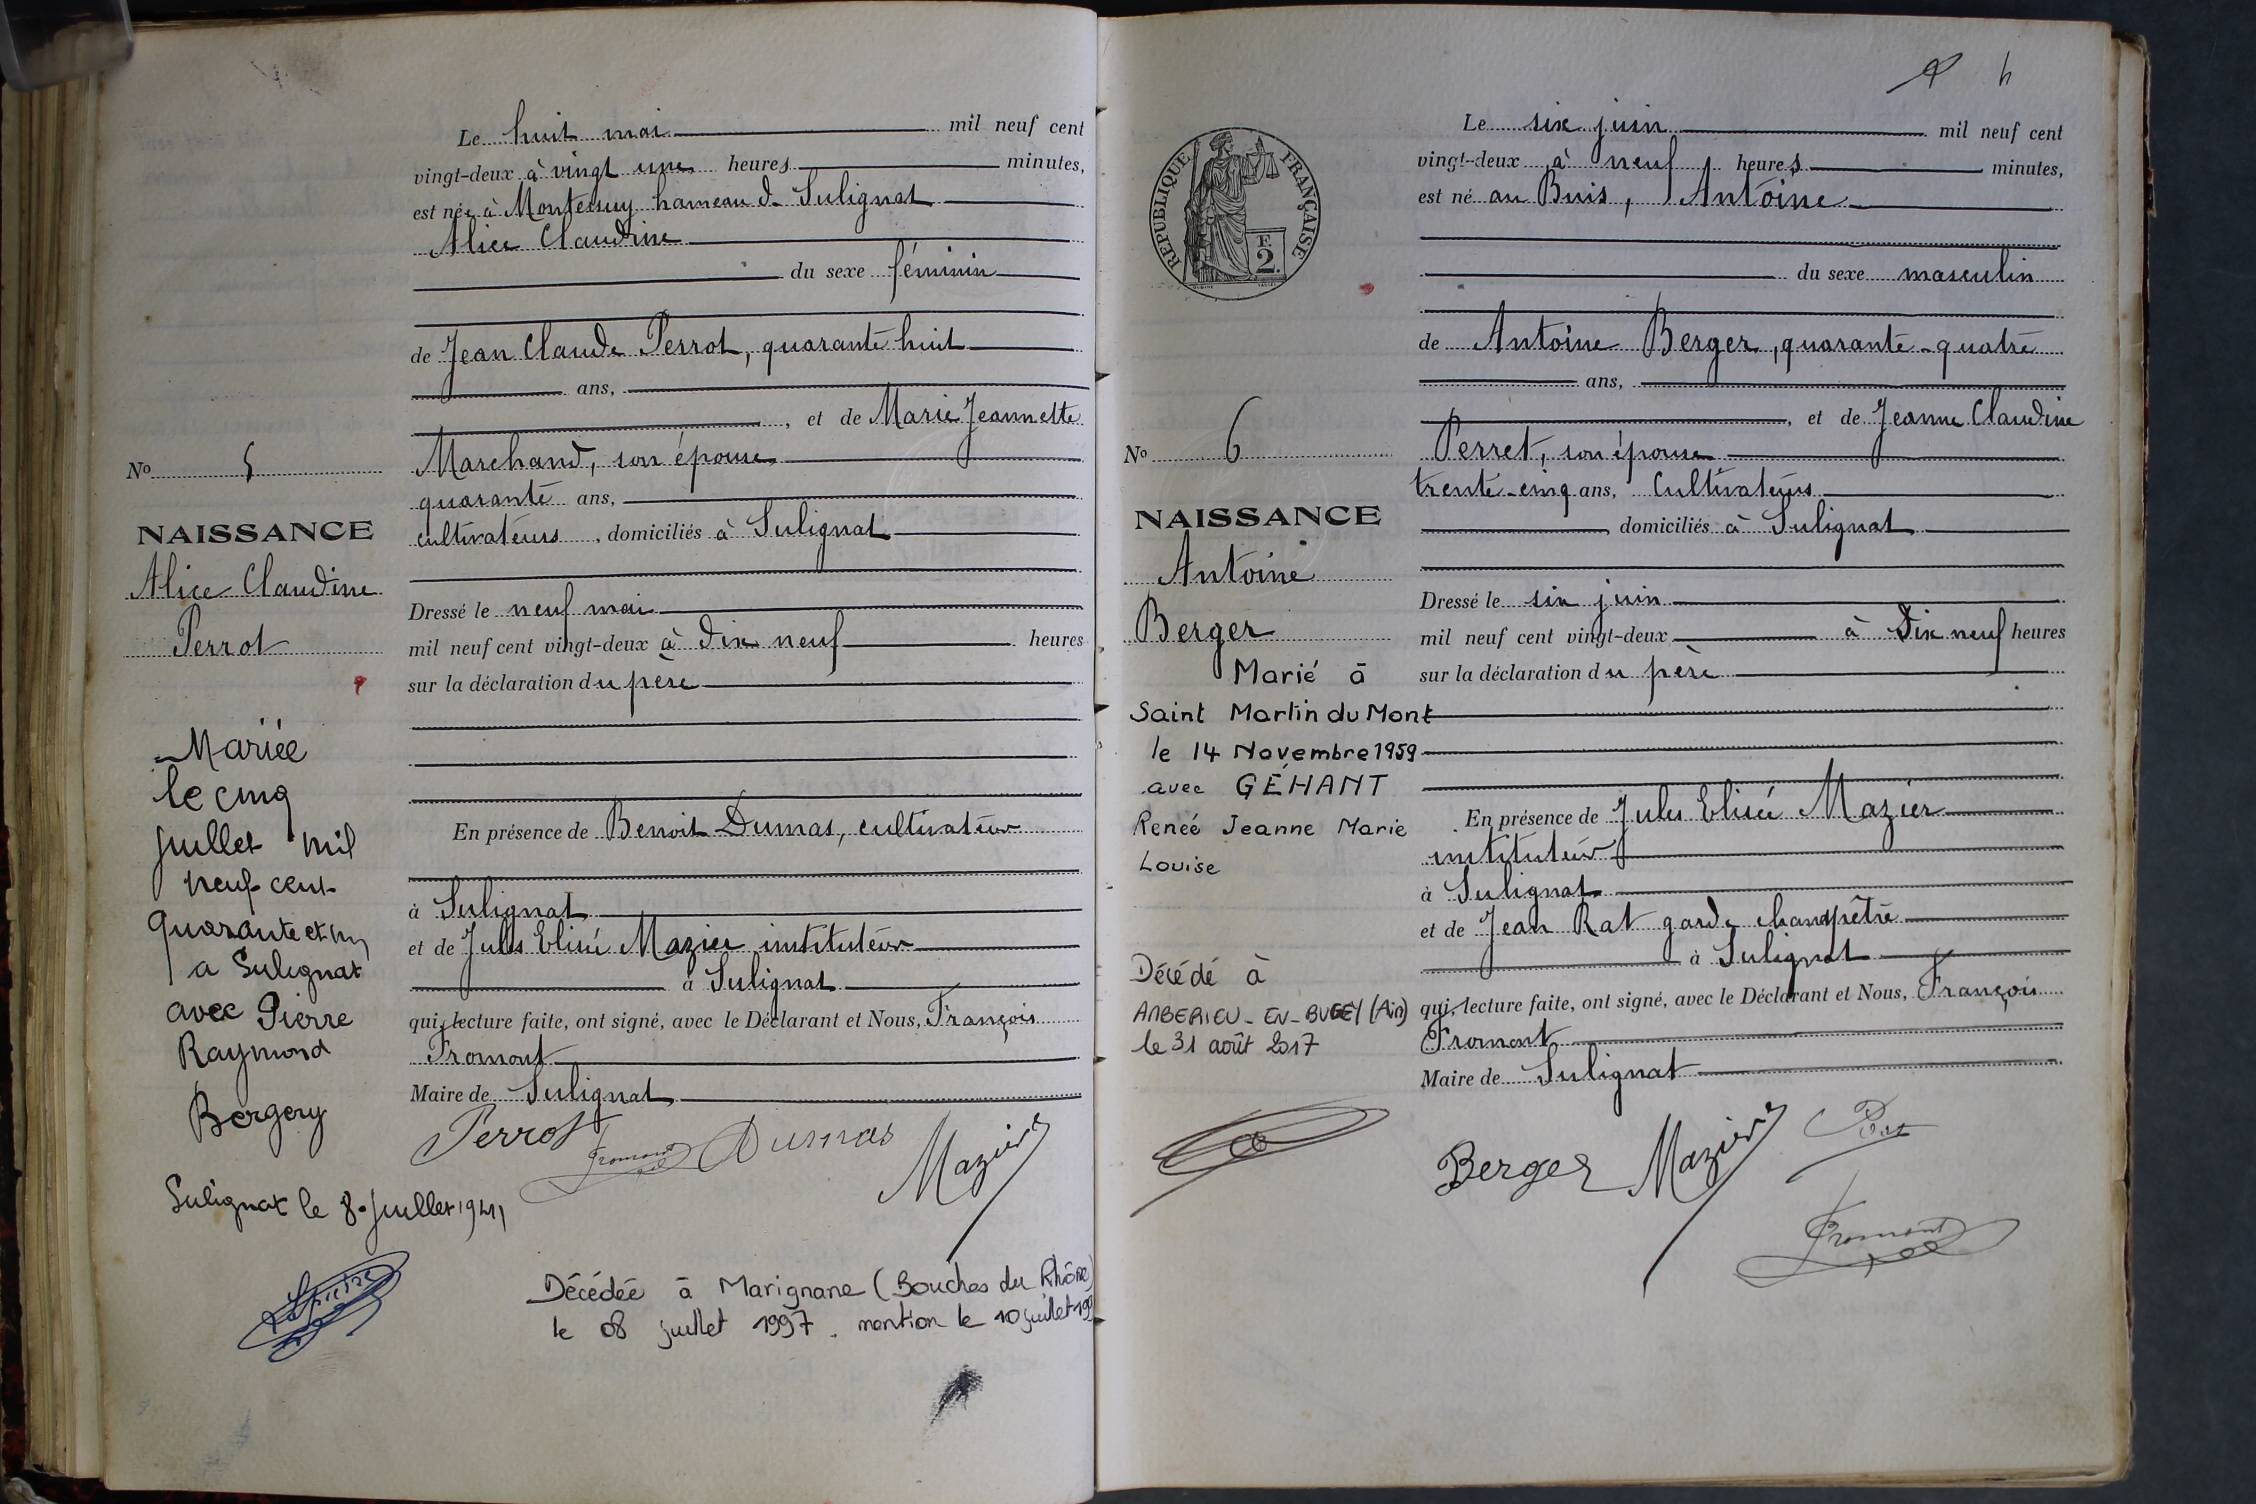 Le huit mai mil neuf cent
vingt-deux à vingt une heures minutes,
est née à Montessuy hameau de Sulignat
Alice Claudine
du sexe féminin
de Jean Claude Perrot, quarante huit
ans,
, et de Marie Jeannette
Marchand, son épouse
quarante ans,
cultivateurs, domiciliés à Sulignat
Dressé le neuf mai
mil neuf cent vingt-deux à dix neuf heures
sur la déclaration du père
En présence de Benoit Dumas, cultivateur
à Sulignat
et de Jules Elisée Mazier instituteur
à Sulignat
qui, lecture faite, ont signé, avec le Déclarant et Nous, François
Fromont
Maire de Sulignat
Perrot Fromont Dumas Mazier
No 5
NAISSANCE
Alice Claudine
Perrot
Mariée
le cinq
juillet mil
neuf cent
quarante et un
a Sulignat
avec Pierre
Raymond
Bergery
Sulignat le 8 juillet 1941
Décédée à Marignane (Bouches du Rhône)
le 08 juillet 1997. mention le 10 juillet
4
RÉPUBLIQUE FRANÇAISE
F.
2.
Le six juin mil neuf cent
vingt-deux à neuf heures minutes,
est né au Buis, Antoine
du sexe masculin
de Antoine Berger, quarante-quatre
ans,
, et de Jeanne Claudine
Perret, son épouse
trente-cinq ans, Cultivateurs
domiciliés à Sulignat
Dressé le six juin
mil neuf cent vingt-deux à dix neuf heures
sur la déclaration du père
En présence de Jules Elisée Mazier
instituteur
à Sulignat
et de Jean Rat garde champêtre
à Sulignat
qui, lecture faite, ont signé, avec le Déclarant et Nous, François
Fromont
Maire de Sulignat
Berger Mazier Rat
Fromont
No 6
NAISSANCE
Antoine
Berger
Marié à
Saint Martin du Mont
le 14 Novembre 1959
avec GÉHANT
Renée Jeanne Marie
Louise
Décédé à
AMBERIEU-EN-BUGEY (Ain)
le 31 août 2017